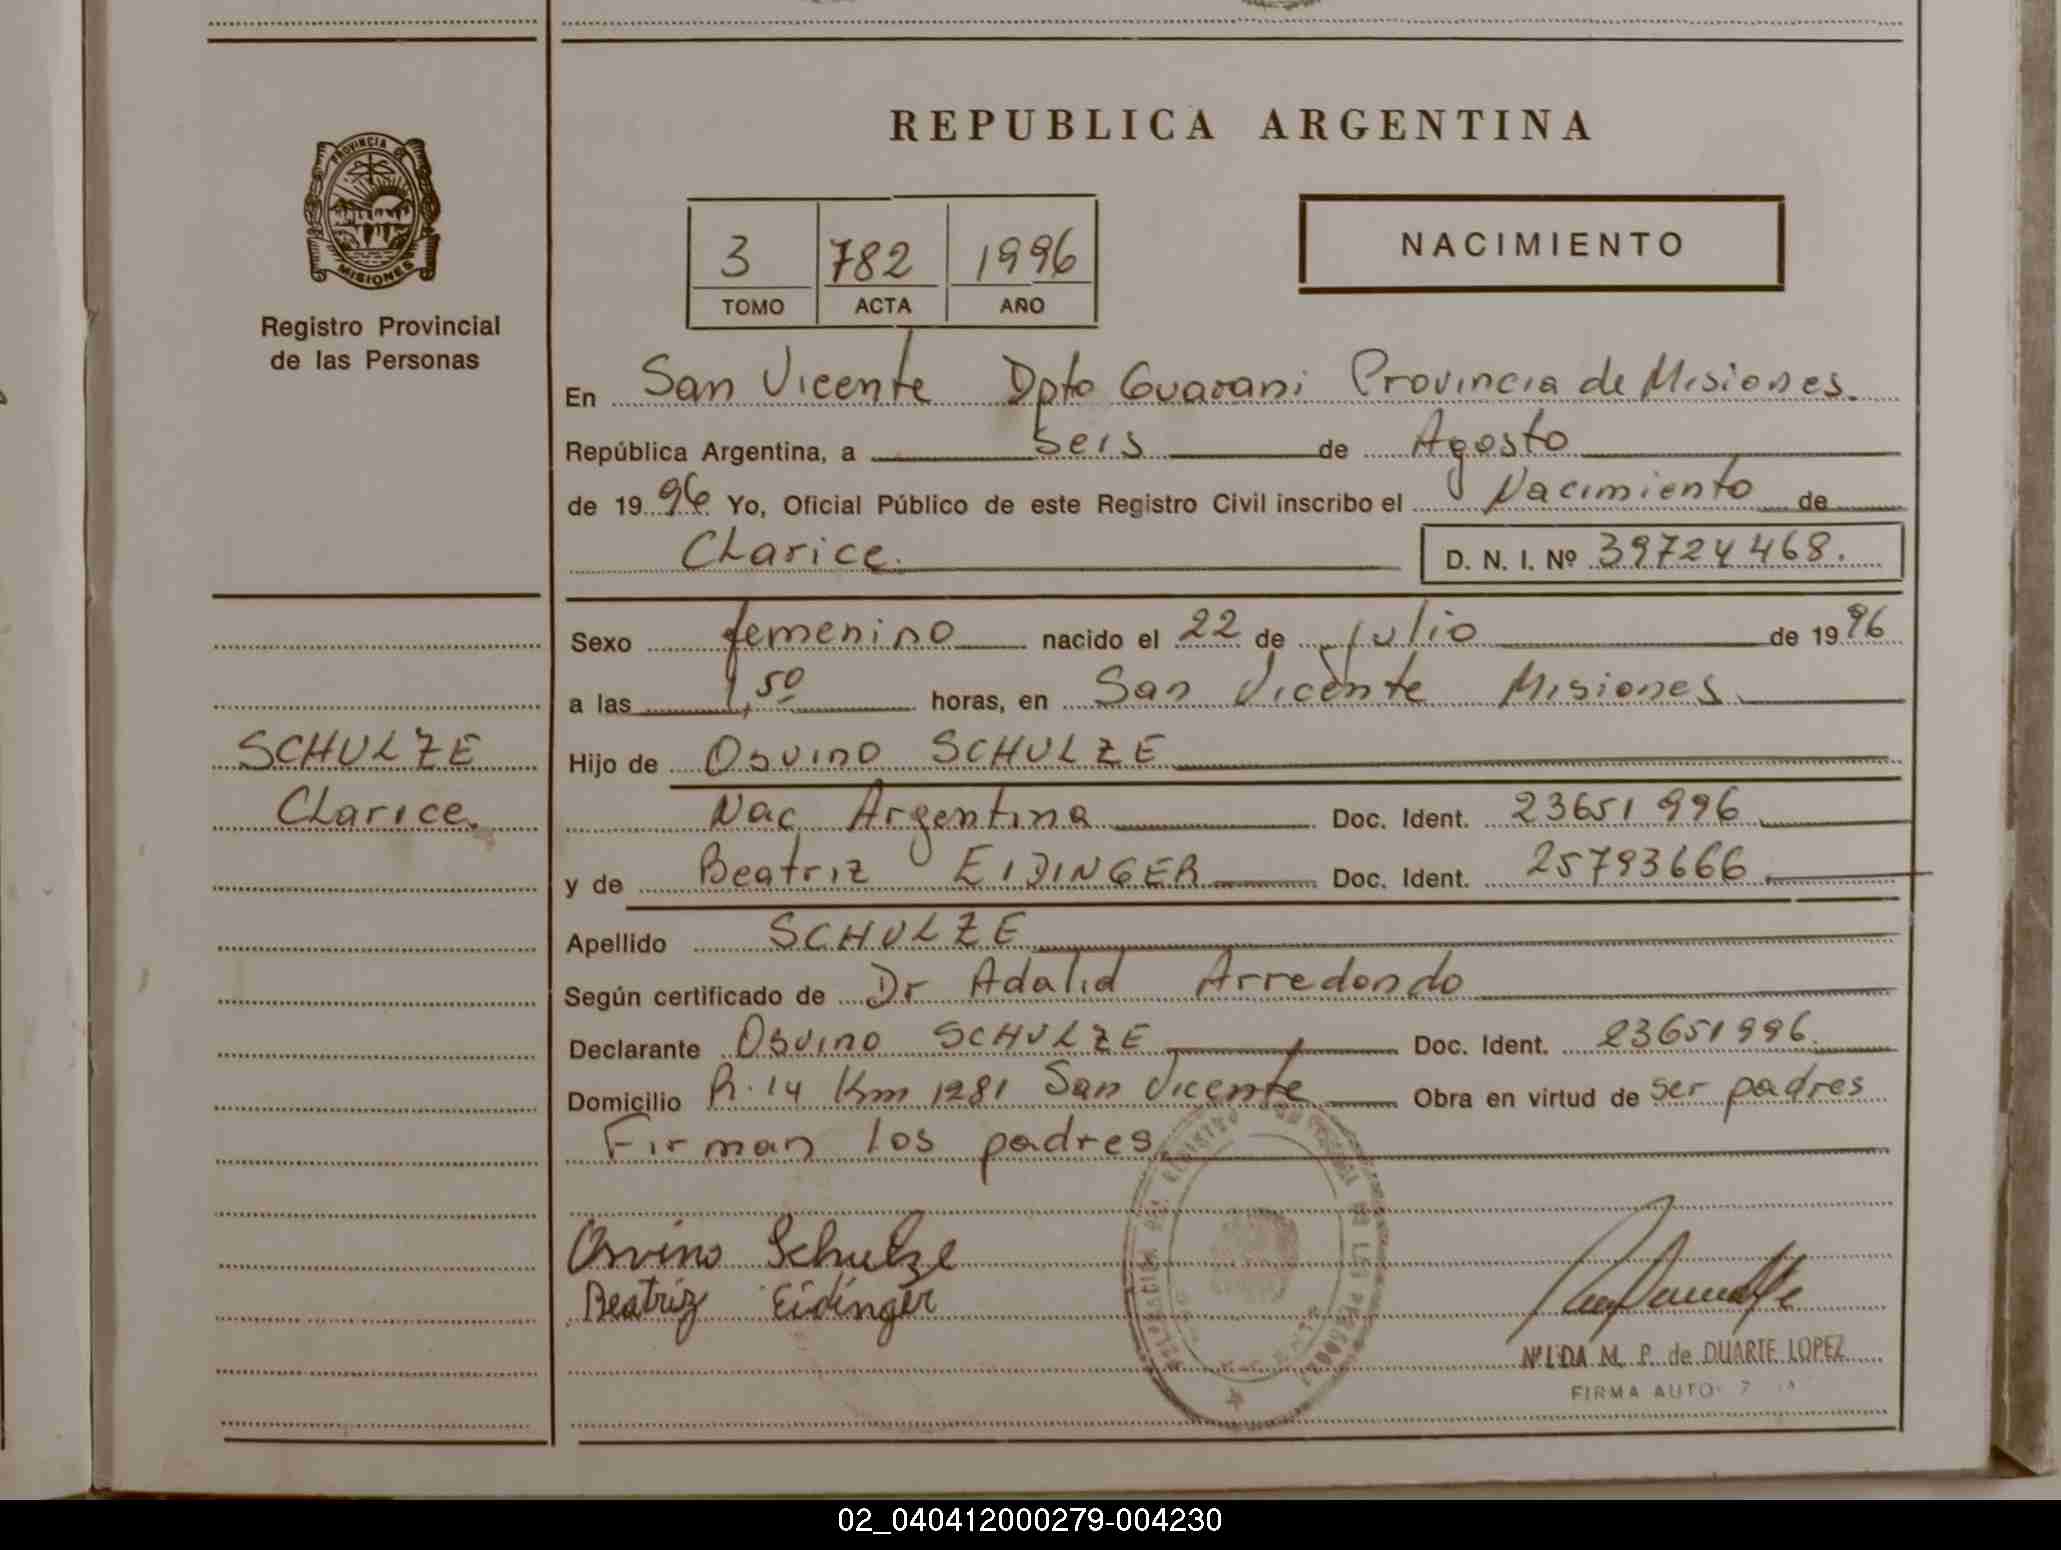 REPUBLICA ARGENTINA
PROVINCIA DE
MISIONES
Registro Provincial
de las Personas
3 782 1996
TOMO ACTA AÑO
NACIMIENTO
En San Vicente Dpto Guarani Provincia de Misiones.
República Argentina, a seis de Agosto
de 1996 Yo, Oficial Público de este Registro Civil inscribo el Nacimiento de
Clarice. D. N. I. Nº 39724468.
Sexo femenino nacido el 22 de julio de 1996
a las 1,50 horas, en San Vicente Misiones
SCHULZE
Clarice.
Hijo de Osvino SCHULZE
Nac. Argentina Doc. Ident. 23651996
y de Beatriz EIDINGER Doc. Ident. 25793666
Apellido SCHULZE
Según certificado de Dr Adalid Arredondo
Declarante Osvino SCHULZE Doc. Ident. 23651996
Domicilio R.14 Km 1281 San Vicente Obra en virtud de ser padres
Firman los padres
Osvino Schulze
Beatriz Eidinger
M. P. de DUARTE LOPEZ
FIRMA
02_040412000279-004230